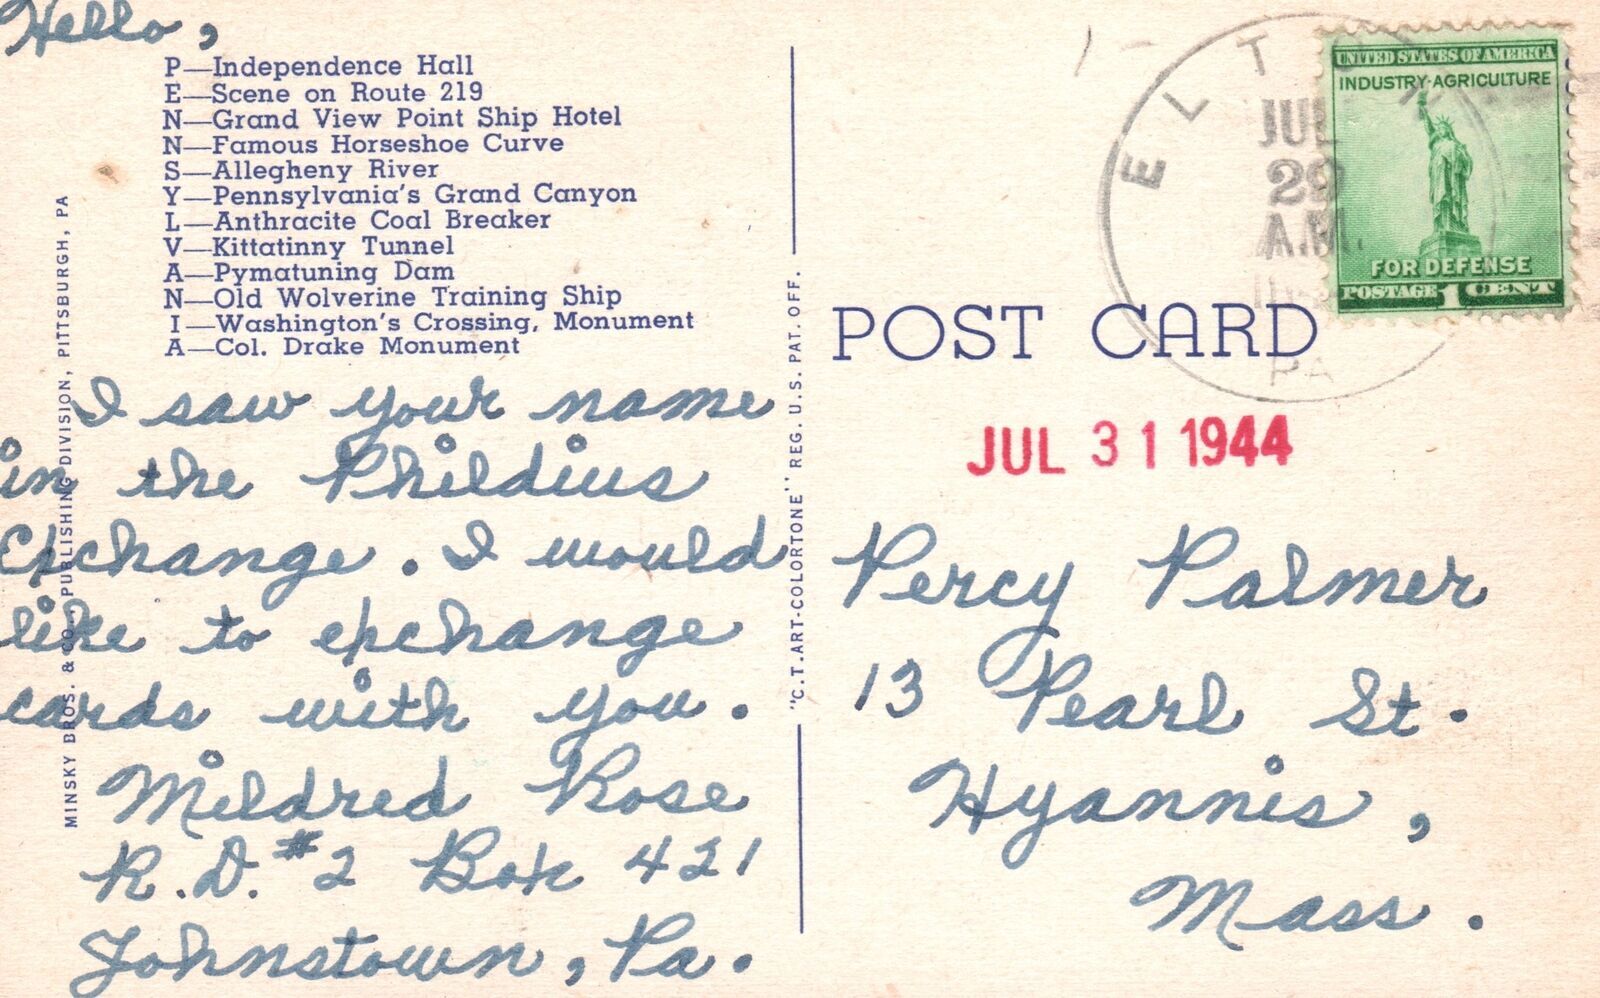 Hello,
P—Independence Hall
E—Scene on Route 219
N—Grand View Point Ship Hotel
N—Famous Horseshoe Curve
S—Allegheny River
Y—Pennsylvania's Grand Canyon
L—Anthracite Coal Breaker
V—Kittatinny Tunnel
A—Pymatuning Dam
N—Old Wolverine Training Ship
I—Washington's Crossing, Monument
A—Col. Drake Monument
I saw your name
in the Phildius
Exchange. I would
like to exchange
cards with you.
Mildred Rose
R.D. #2 Box 421
Johnstown, Pa.
MINSKY BROS. & CO. PUBLISHING DIVISION, PITTSBURGH, PA
"C.T. ART-COLORTONE" REG. U.S. PAT. OFF.
ELT
JUL
29
A.M.
PA
UNITED STATES OF AMERICA
INDUSTRY·AGRICULTURE
FOR DEFENSE
POSTAGE 1 CENT
POST CARD
JUL 31 1944
Percy Palmer
13 Pearl St.
Hyannis,
Mass.